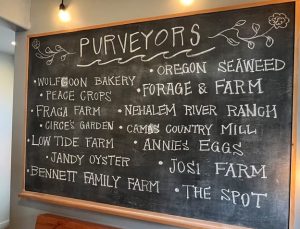 PURVEYORS
• OREGON SEAWEED
• WOLFMOON BAKERY
• FORAGE & FARM
• PEACE CROPS
• NEHALEM RIVER RANCH
• FRAGA FARM
• CIRCE'S GARDEN
• CAMAS COUNTRY MILL
• LOW TIDE FARM
• ANNIE'S EGGS
• JANDY OYSTER
• JOSI FARM
• BENNETT FAMILY FARM
• THE SPOT